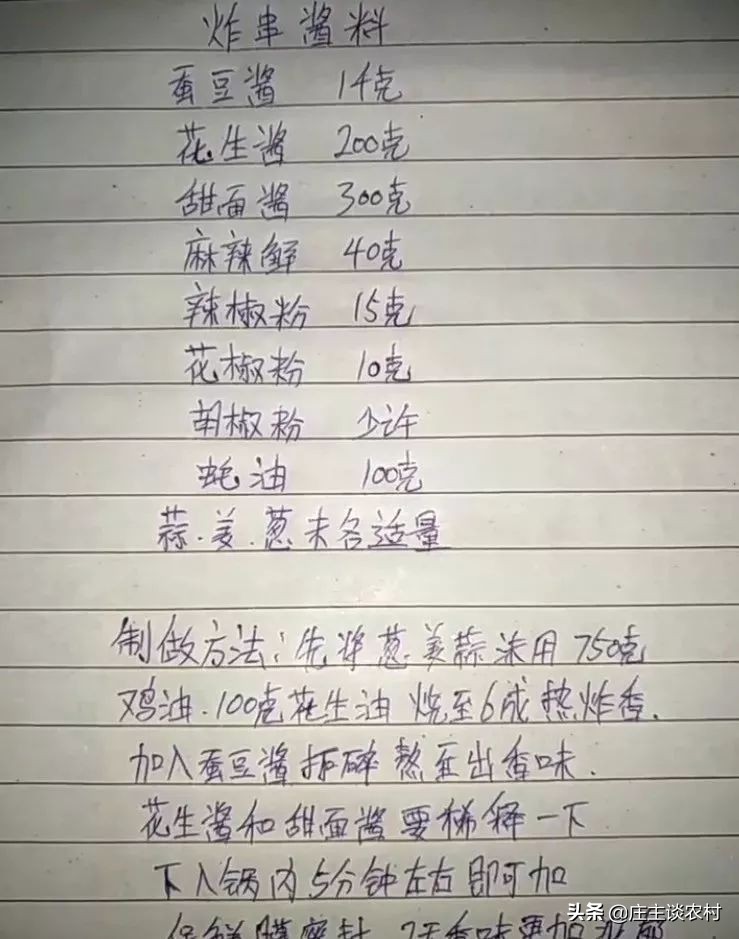 炸串酱料
蚕豆酱 14克
花生酱 200克
甜面酱 300克
麻辣鲜 40克
辣椒粉 15克
花椒粉 10克
胡椒粉 少许
蚝油 100克
蒜.姜.葱末各适量
制做方法:先将葱姜蒜沫用750克
鸡油.100克花生油 烧至6成热炸香.
加入蚕豆酱 熬至出香味.
花生酱和甜面酱要稀释一下
下入锅内5分钟左右即可加
保鲜膜密封
头条 @庄主谈农村